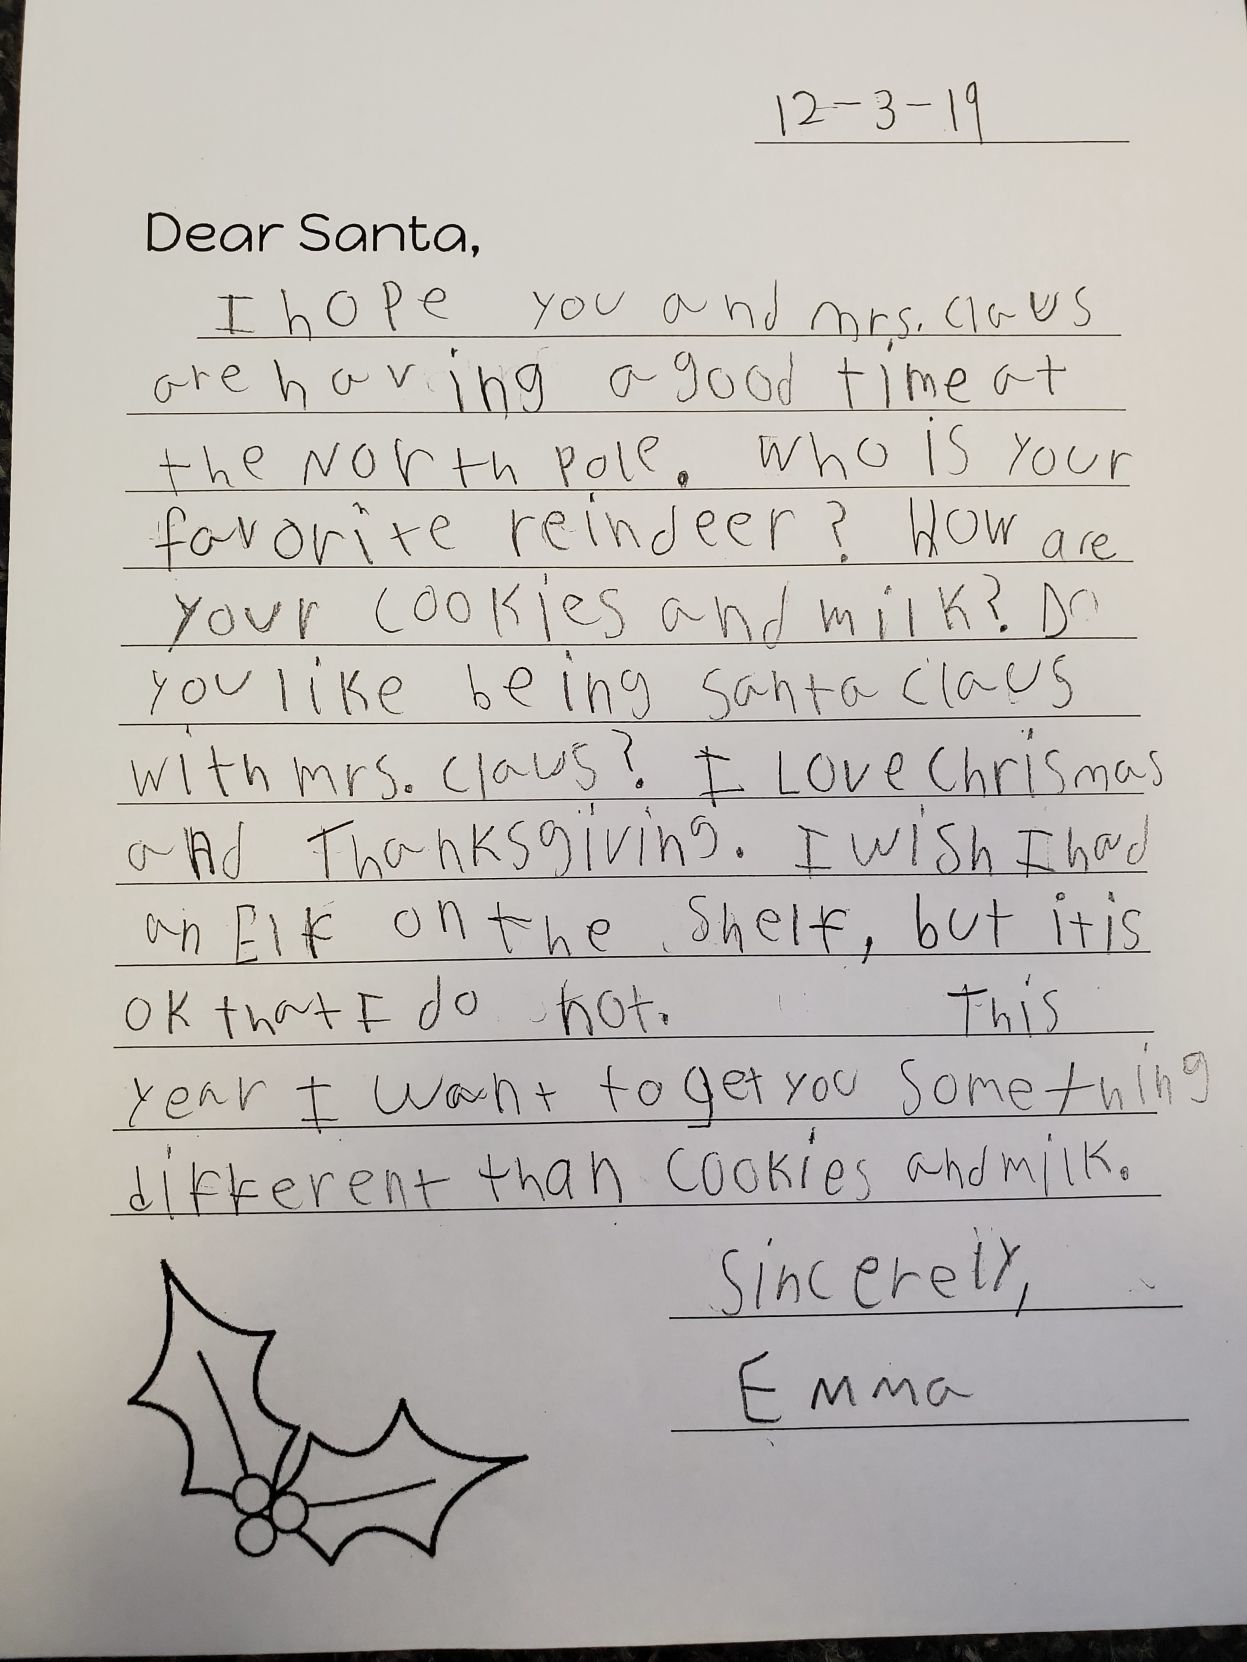 12-3-19
Dear Santa,
I hope you and mrs. claus
are having a good time at
the North pole. Who is your
favorite reindeer? How are
your cookies and milk? Do
you like being santa claus
with mrs. claus? I Love Chrismas
and Thanksgiving. I wish I had
an Elf on the Shelf, but it is
OK that I do not. This
year I want to get you something
different than cookies and milk.
Sincerely,
Emma